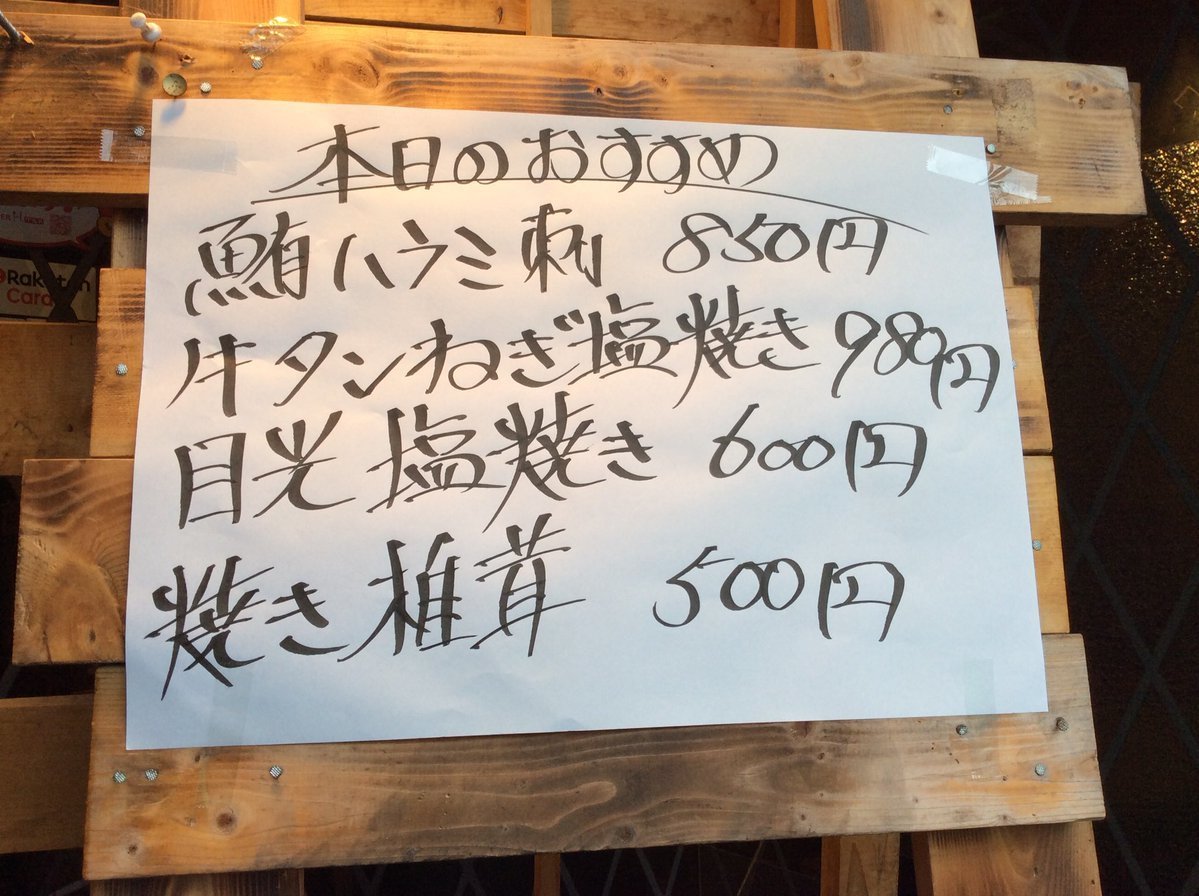 本日のおすすめ
鮪ハラミ刺 850円
牛タンねぎ塩焼き 980円
目光塩焼き 600円
焼き椎茸 500円
Rakuten
Card